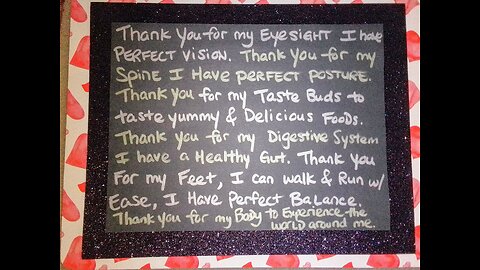 Thank You for my Eyesight I have
PERFECT VISION. Thank You for my
Spine I Have PERFECT POSTURE.
Thank You for my Taste Buds to
taste yummy & Delicious Foods.
Thank You for my Digestive System
I have a Healthy Gut. Thank You
For my Feet, I can walk & Run w/
Ease, I Have Perfect Balance.
Thank You for my Body to Experience the
world around me.